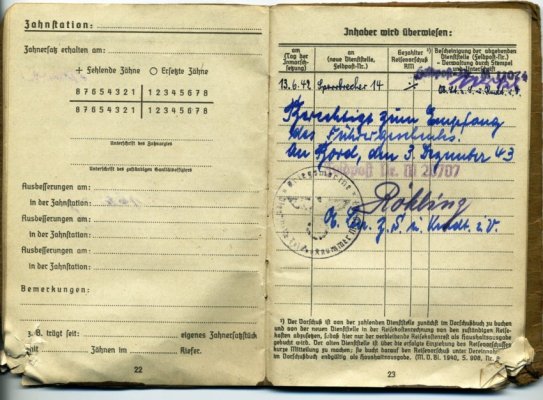 Zahnstation:
Zahnersatz erhalten am:
+ Fehlende Zähne O Ersetzte Zähne
87654321 | 12345678
87654321 | 12345678
Unterschrift des Zahnarztes
Unterschrift des zugehörigen Sanitätsoffiziers
Ausbesserungen am:
in der Zahnstation:
Ausbesserungen am:
in der Zahnstation:
Ausbesserungen am:
in der Zahnstation:
Bemerkungen:
z. B. trägt seit: eigenes Zahnersatzstück
mit Zähnen im Kiefer.
22
Inhaber wird überwiesen:
am (Tag der Inmarschsetzung)
an (neue Dienststelle, Feldpost-Nr.)
Bezahlter Reisevorschuß RM
¹) Bescheinigung der abgebenden Dienststelle (Feldpost-Nr.) - Verwaltung durch Stempel und Unterschrift
13.6.42 Sperrbrecher 14
Berechtigt zum Empfang
des Führergeschenks.
An Bord, den 3. Dezember 43
Feldpost Nr. M 20707
Röhling
Kriegsmarine
Ob. Lt. z. S. u. Kmdt. i.V.
¹) Der Vorschuß ist von der zahlenden Dienststelle zunächst im Vorschußbuch zu buchen
und von der neuen Dienststelle in der Reisekostenrechnung von den zuständigen Reise-
kosten abzusetzen, so daß hier nur der verbleibende Reisekostenrest als Haushaltsausgabe
gebucht wird. Der alten Dienststelle ist über die erfolgte Einziehung des Reisevorschusses
kurze Mitteilung zu machen; sie bucht darauf den Reisevorschuß unter Vereinnahmung
im Vorschußbuch endgültig als Haushaltsausgabe. (M. D. Bl. 1940, S. 908, Nr.
23